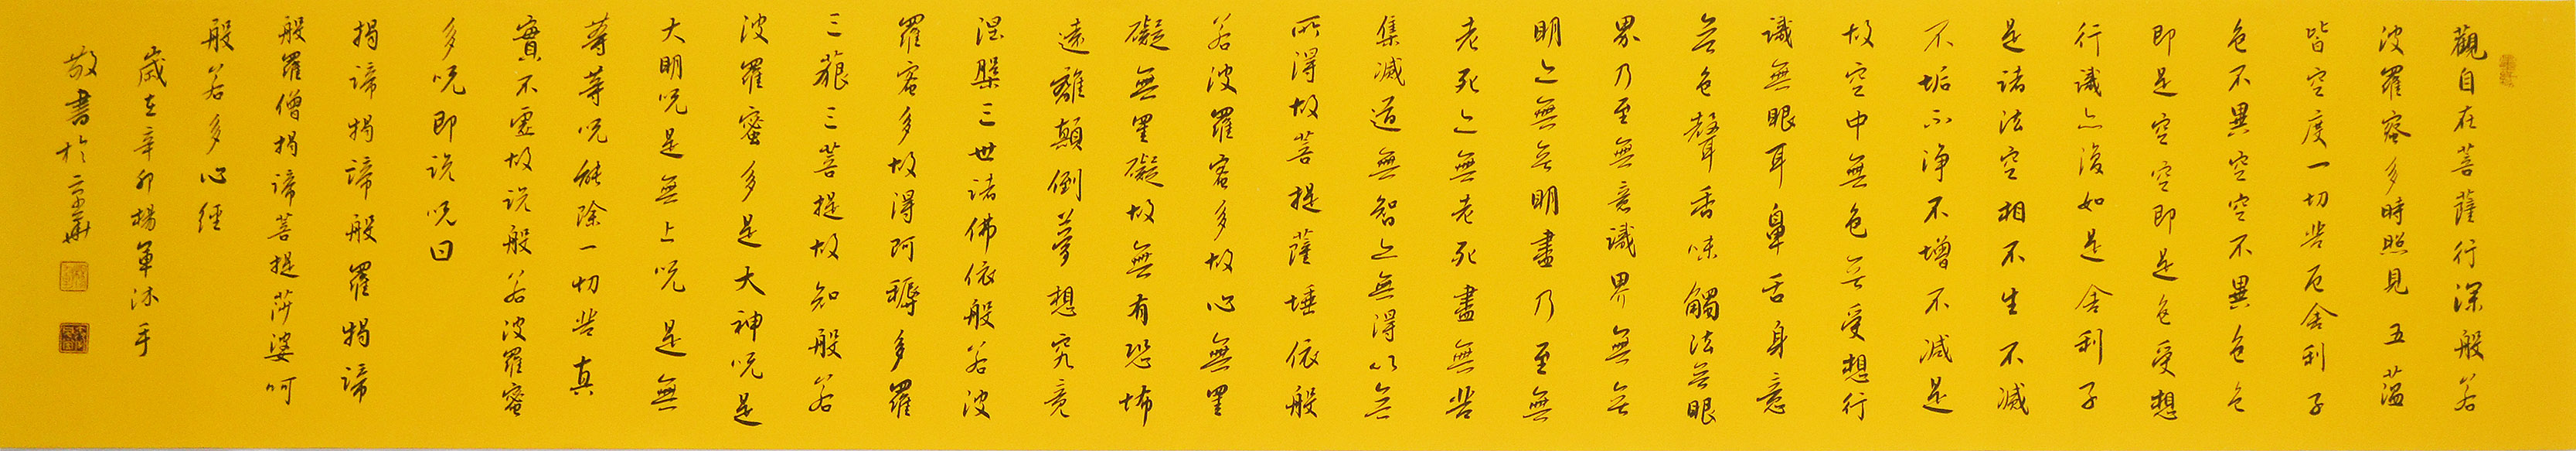 觀自在菩薩行深般若
波羅蜜多時照見五蘊
皆空度一切苦厄舍利子
色不異空空不異色色
即是空空即是色受想
行識亦復如是舍利子
是諸法空相不生不滅
不垢不淨不增不減是
故空中無色無受想行
識無眼耳鼻舌身意
無色聲香味觸法無眼
界乃至無意識界無無
明亦無無明盡乃至無
老死亦無老死盡無苦
集滅道無智亦無得以無
所得故菩提薩埵依般
若波羅蜜多故心無罣
礙無罣礙故無有恐怖
遠離顛倒夢想究竟
涅槃三世諸佛依般若波
羅蜜多故得阿耨多羅
三藐三菩提故知般若
波羅蜜多是大神咒是
大明咒是無上咒是無
等等咒能除一切苦真
實不虛故說般若波羅蜜
多咒即說咒曰
揭諦揭諦般羅揭諦
般羅僧揭諦菩提莎婆呵
般若多心經
歲在辛卯楊軍沐手
敬書於京華